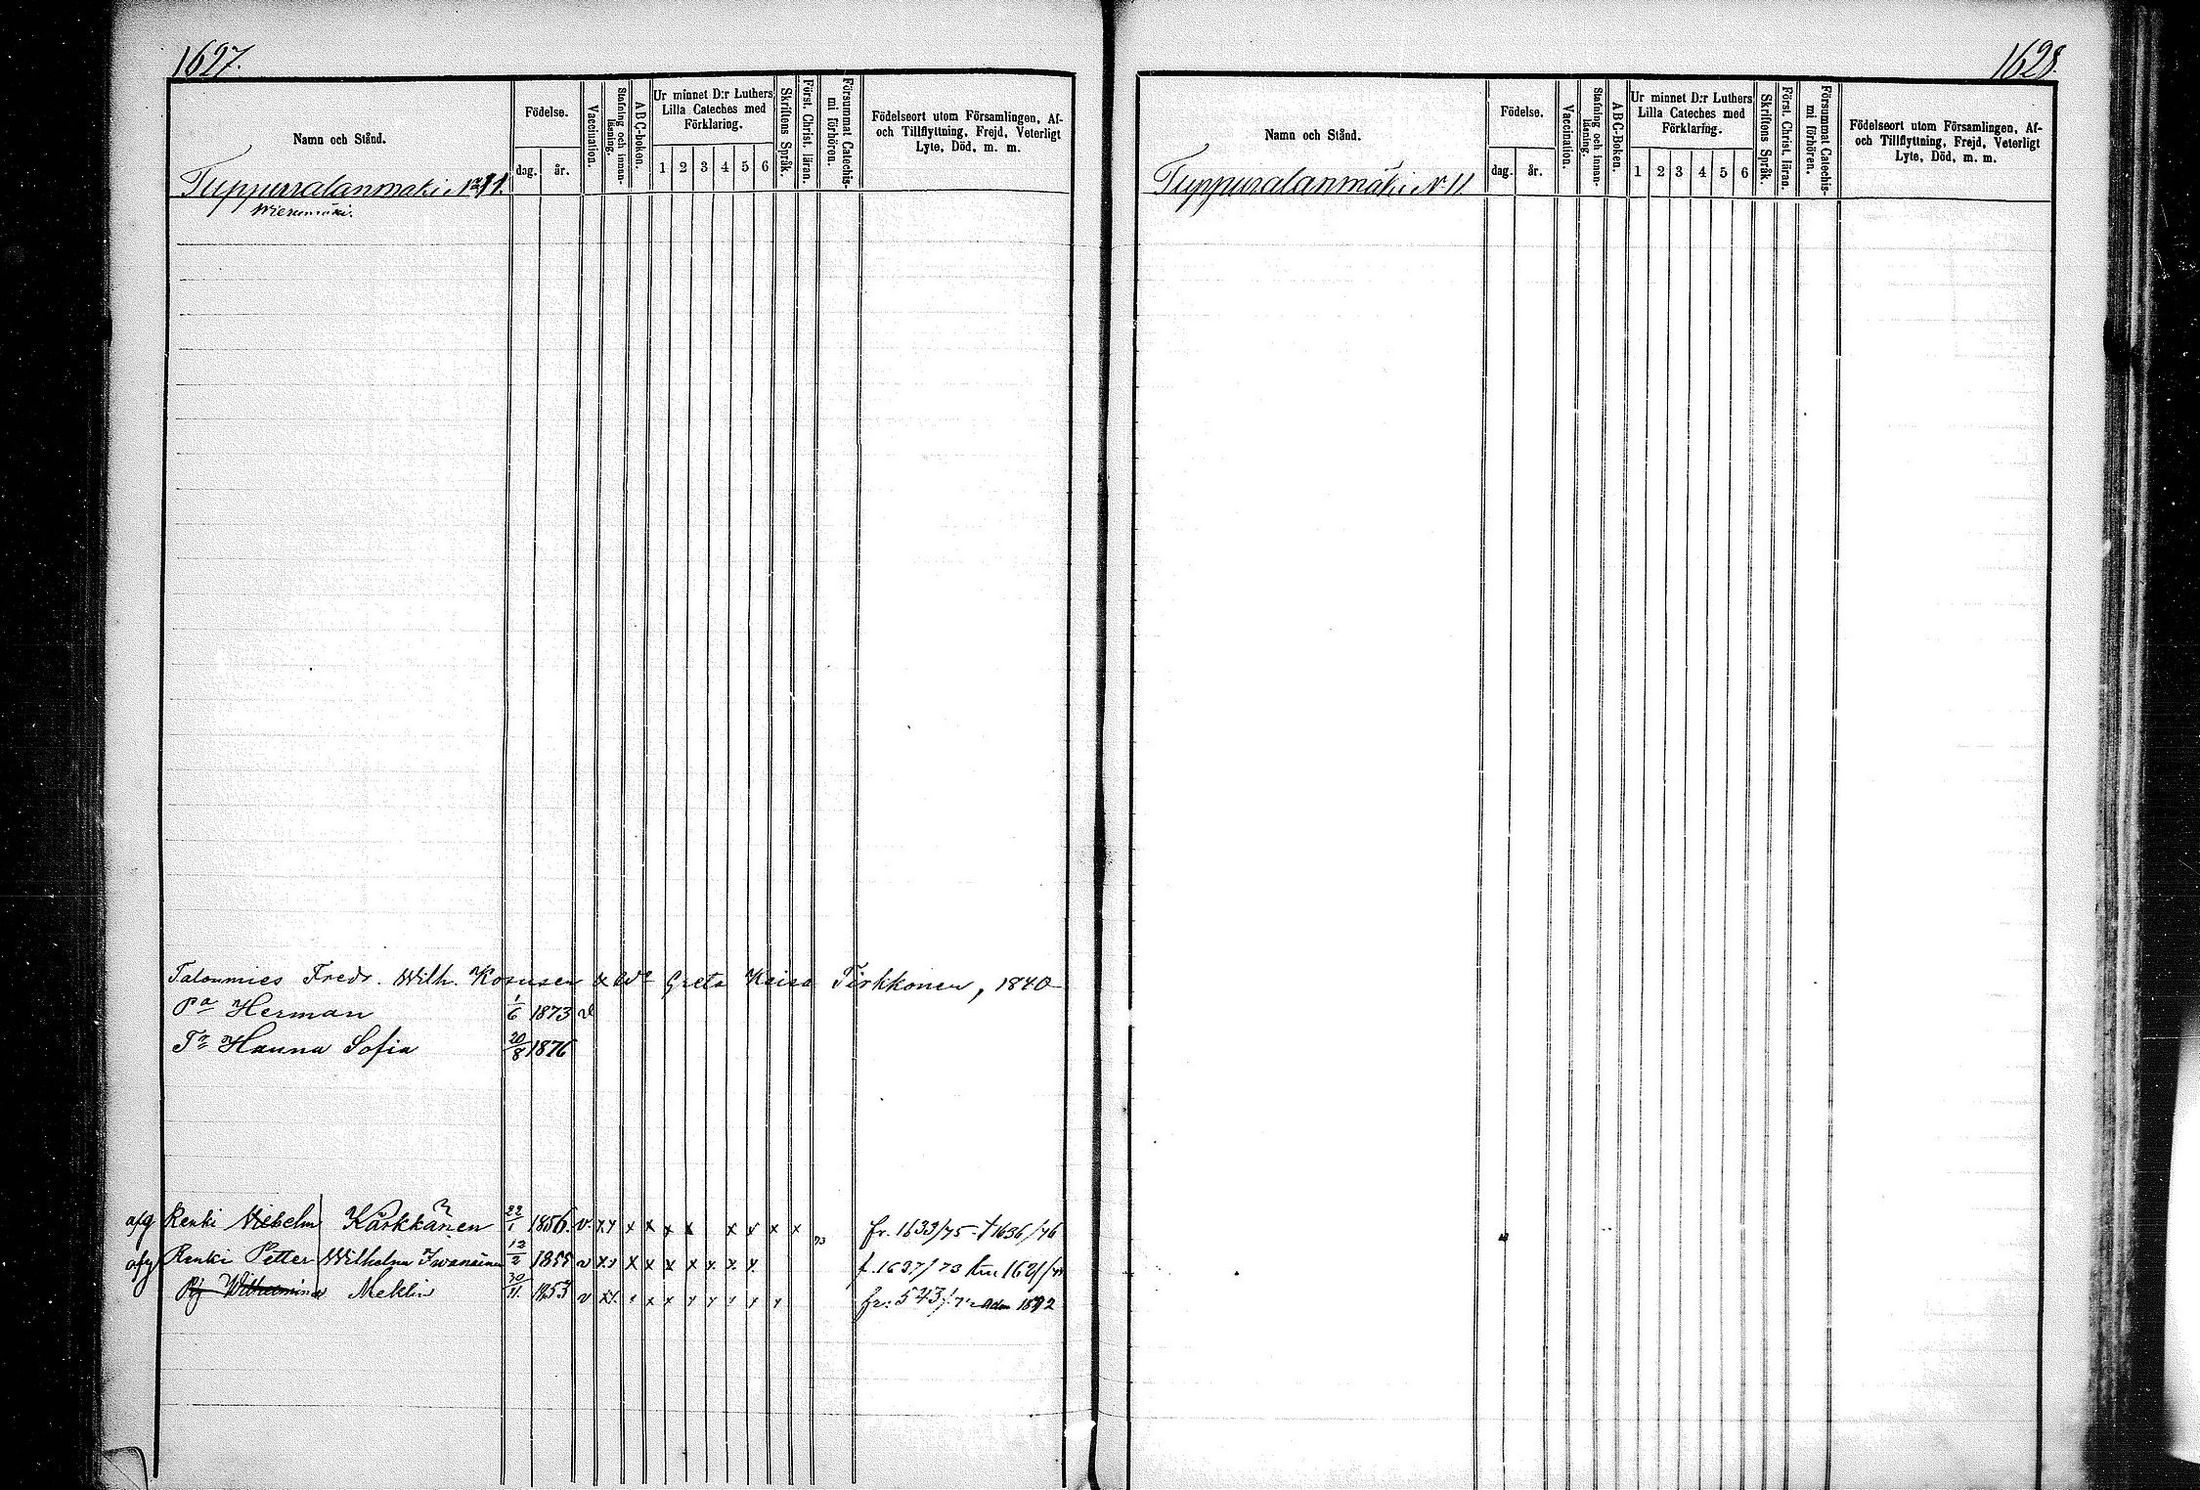 1627.
Namn och Stånd.
Födelse.
dag.
år.
Vaccination.
Stafning och innan-
läsning.
ABC-boken.
Ur minnet D:r Luthers
Lilla Cateches med
Förklaring.
1 2 3 4 5 6
Skriftens Språk.
Först. Christ. läran.
Försummat Catechis-
mi förhören.
Födelseort utom Församlingen, Af-
och Tillflyttning, Frejd, Veterligt
Lyte, Död, m. m.
Tuppuralanmäki No 11.
Wieremäki.
Talonmies Fredr. Wilh. Kosusen & Wa Greta Kaisa Tirkkonen, 1840
Pa Herman 1/6 1873 v
Tr Hanna Sofia 20/8 1876
afg Renki Wilhelm Kärkkänen 22/1 1856. v. x x x x x x x x x x fr. 1633/75 - † 1636/76
afg Renki Petter Wilhelm Iwanainen 12/2 1855 v x x x x x x x x x 73 f. 1637/73
Pig Wilhelmina Meklin 30/11 1853 v x x x x x x x x x x fr: 543/
1628.
Namn och Stånd.
Födelse.
dag.
år.
Vaccination.
Stafning och innan-
läsning.
ABC-Boken.
Ur minnet D:r Luthers
Lilla Cateches med
Förklaring.
1 2 3 4 5 6
Skriftens Språk.
Först. Christ. läran.
Försummat Catechis-
mi förhören.
Födelseort utom Församlingen, Af-
och Tillflyttning, Frejd, Veterligt
Lyte, Död, m. m.
Tuppuralanmäki N 11